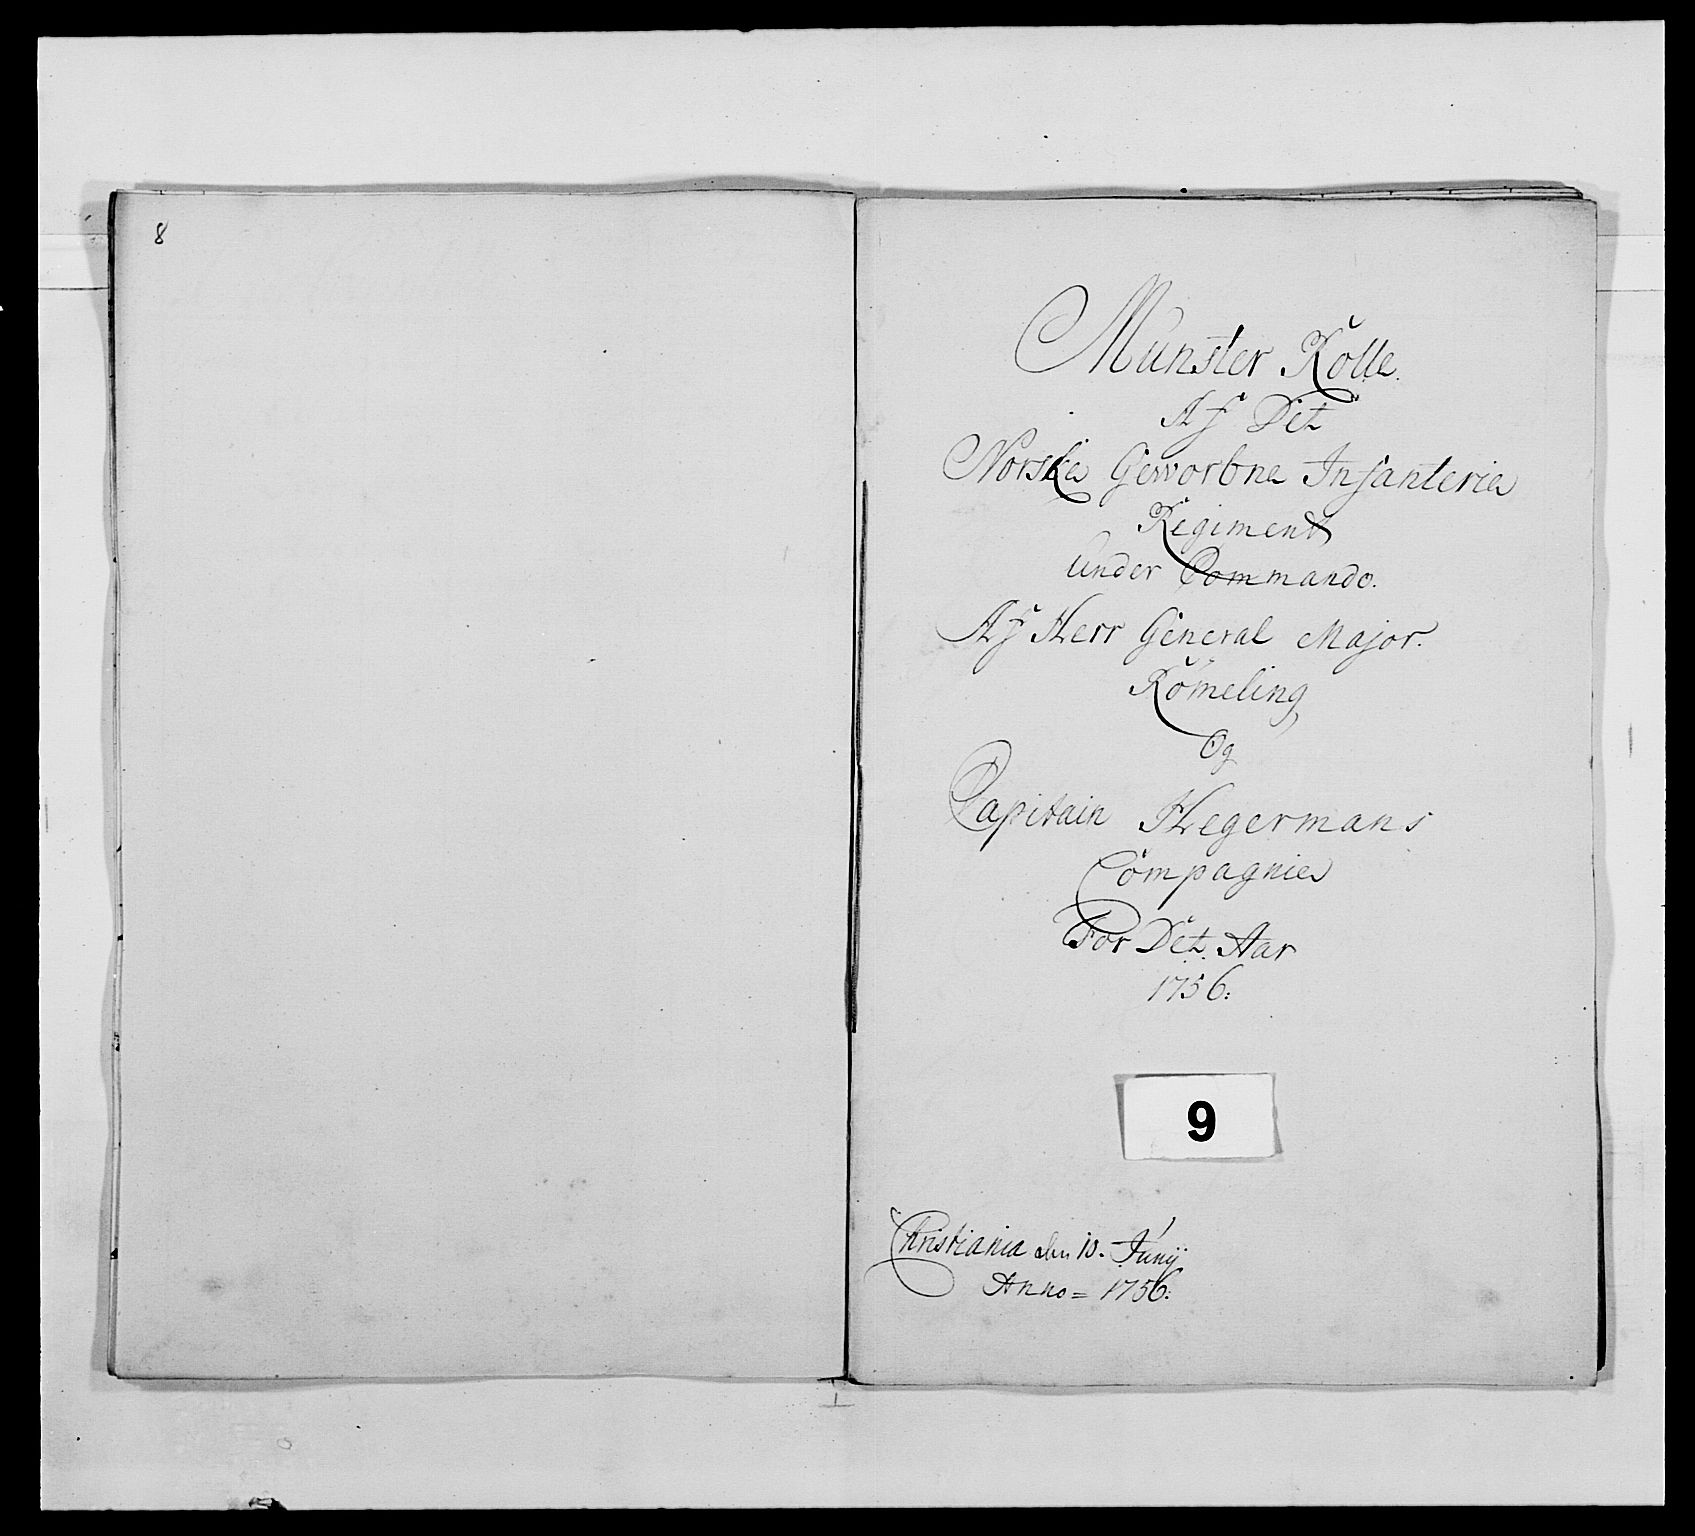 8
Munster Rolle.
Af Det
Norske Geworbne Infanterie
Regiment
under Commando.
Af Herr General Major.
Römeling
Og
Capitain Hegermans
Compagnie
For Det Aar
1756:
9
Christiania den 10. Junij
Anno = 1756: